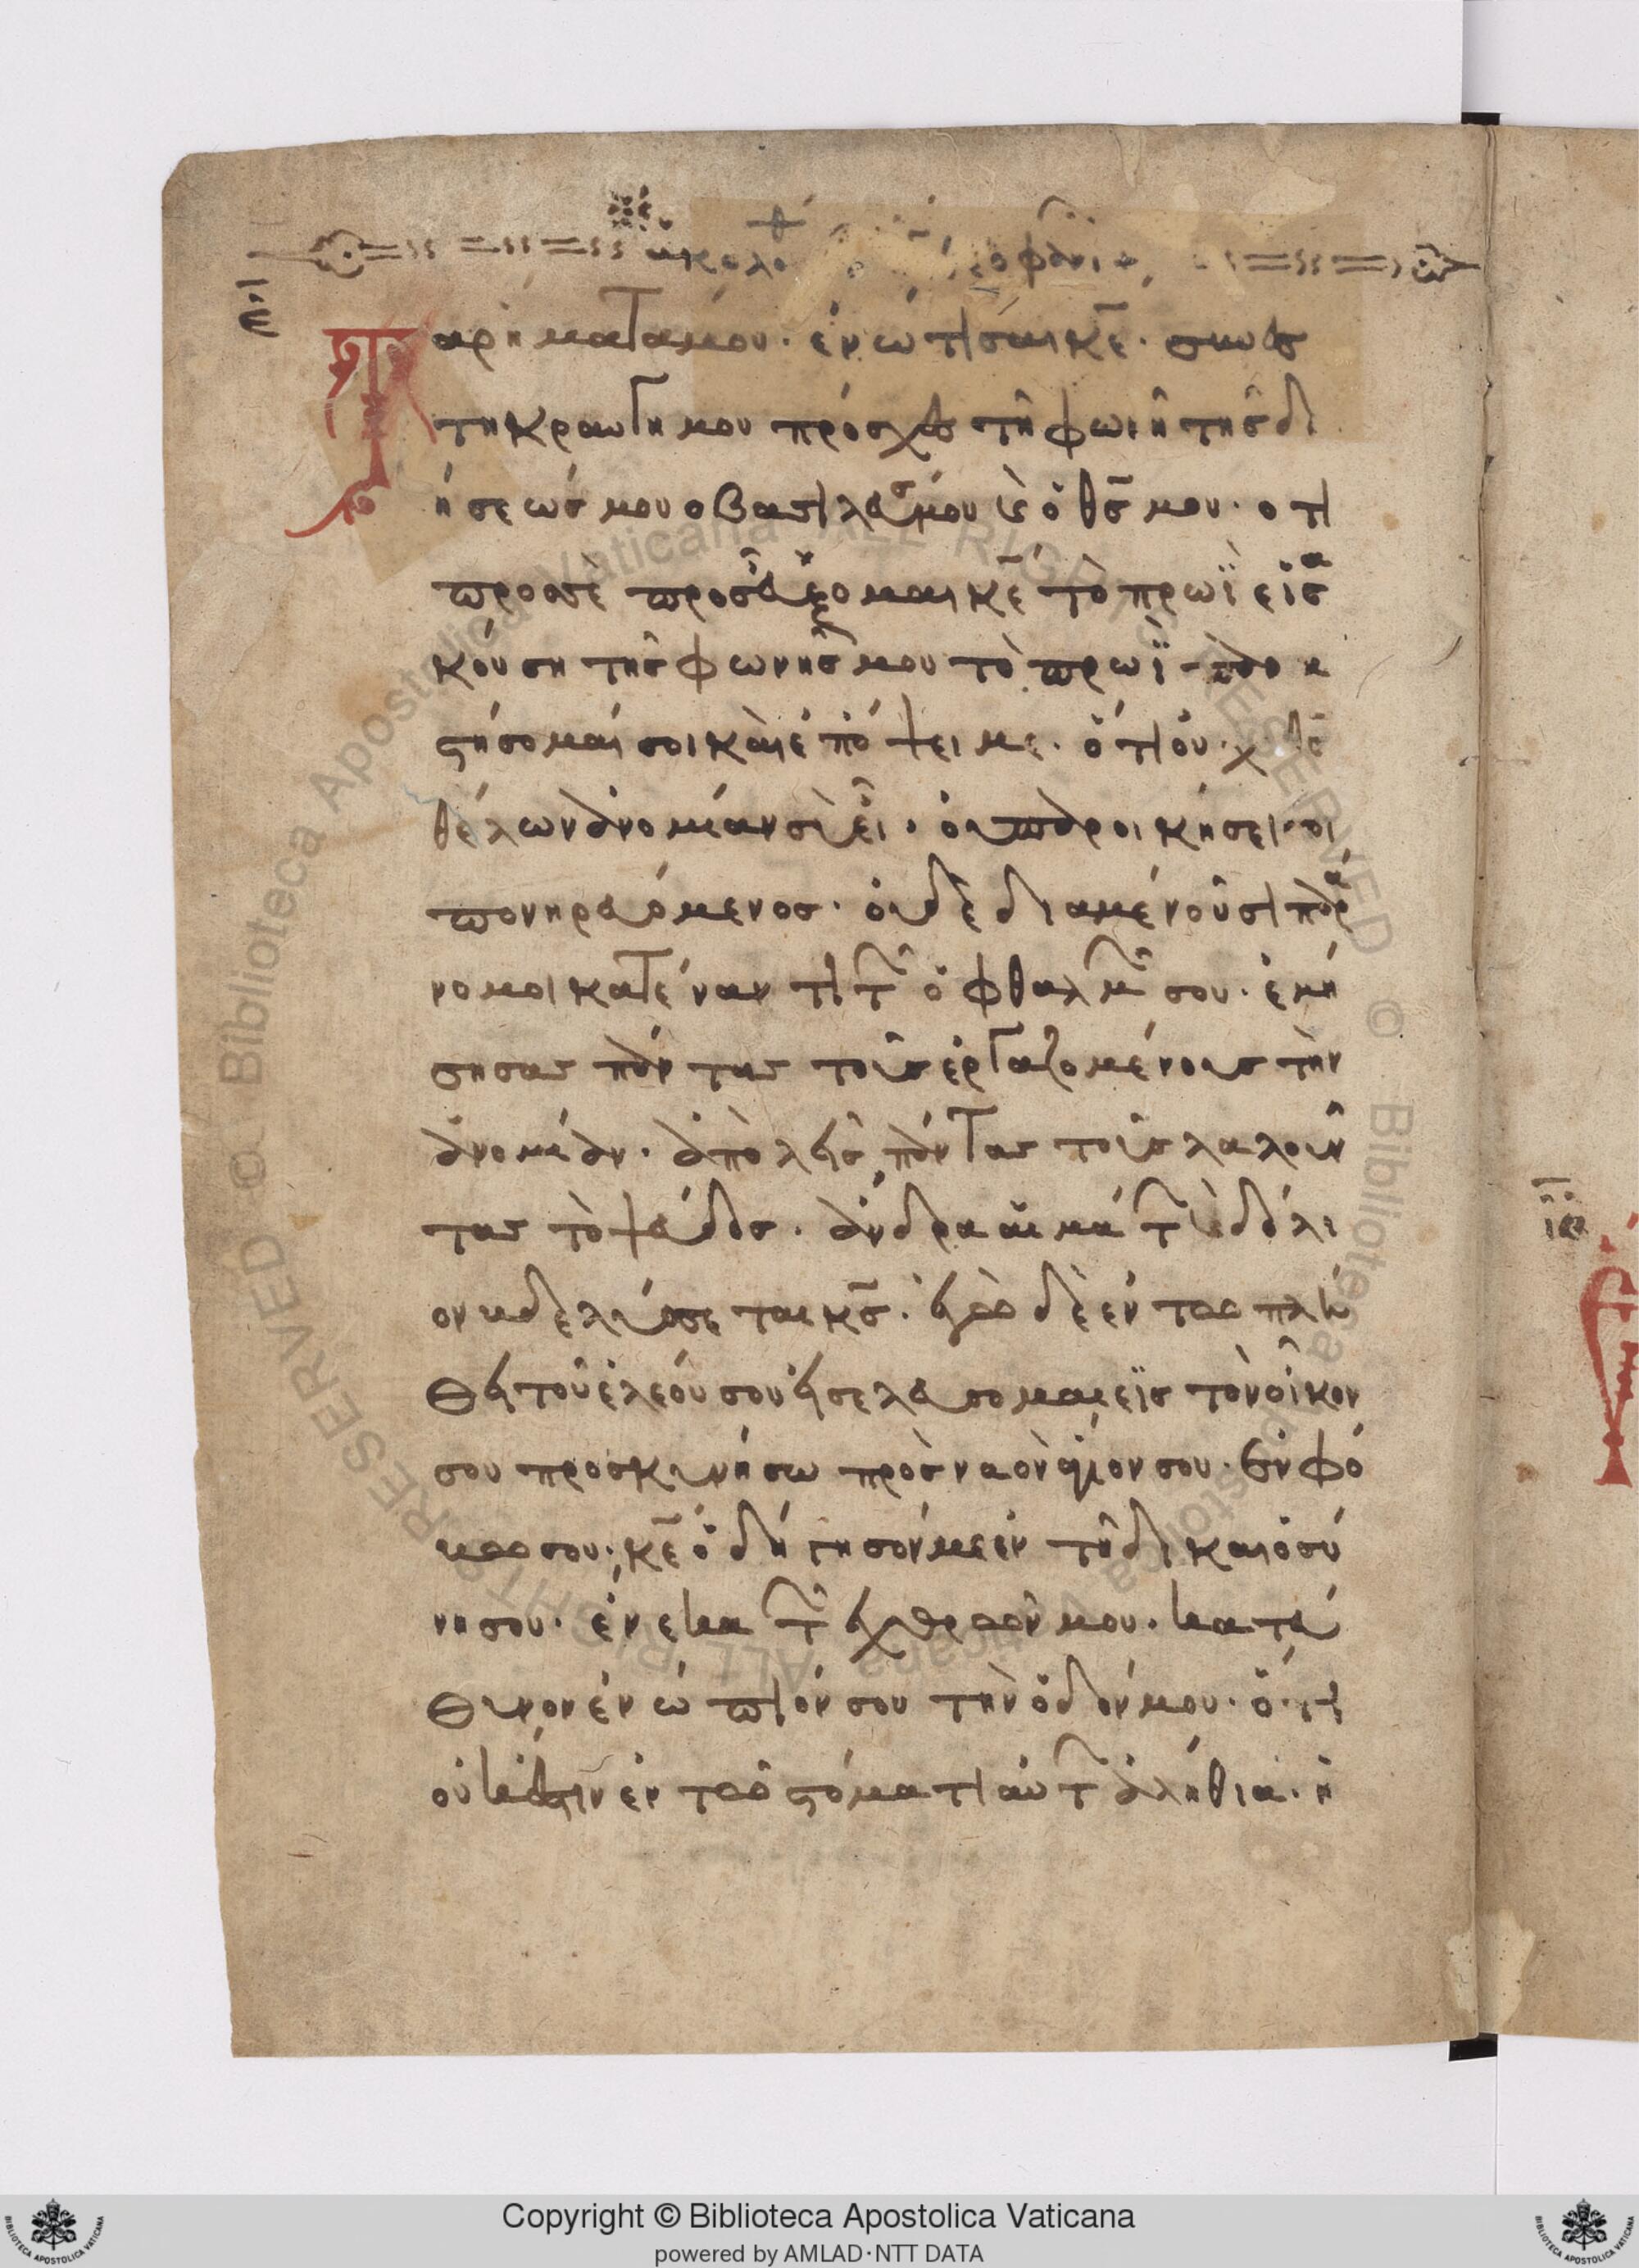 ε
Τα ρήματά μου. ἐνώτισαι κε̄. συνες
τη κραυγη μου πρόσχες τῆ φωνῆ τῆς δε
ήσεώς μου ο βασιλεύς μου κ ὁ θς̄ μου. οτι
προσὲ προσεύξομαι κε̄ τὸ πρωϊ εἰσα
κούση τῆς φωνῆς μου τὸ πρωϊ παρα
στήσομαί σοι καὶ ἐπόψει με. ὅτι οὐχὶ θς̄
θέλων ἀνομίαν σὺ εἶ. οὐ παροικήσει σοι
πονηρευόμενος. οὐδὲ διαμένοῦσι παρά
νομοι κατέναντι τῶν ὀφθαλμῶν σου. ἐμή
σησας πάντας τοὺς ἐργαζομένους τὴν
ἀνομίαν. ἀπολῆς πάντας τοὺς λαλοῦν
τας τὸ ψεύδος. ἄνδρα αἱμάτων κ δόλι
ον βδελύσσεται κς̄. ἐγὼ δὲ ἐν τω πλή
θη τοῦ ἐλεόυ σου ἠσελεύσομαι εἰς τὸν οἶκον
σου προσκυνήσω πρὸς ναὸν ἅγιον σου. ἐν φό
βω σου. κε̄ ὁδήγησόν με ἐν τῆ δικαιοσύ
νη σου. ἐνεκα τῶν ἐχθρῶν μου. κατεύ
θυνον ἐνώπιόν σου τὴν ὁδόν μου. ὅτι
οὐκ ἔστιν ἐν τῶ στόματι αὐτῶν ἀλήθια. ἡ
ιε
Copyright © Biblioteca Apostolica Vaticana
powered by AMLAD·NTT DATA